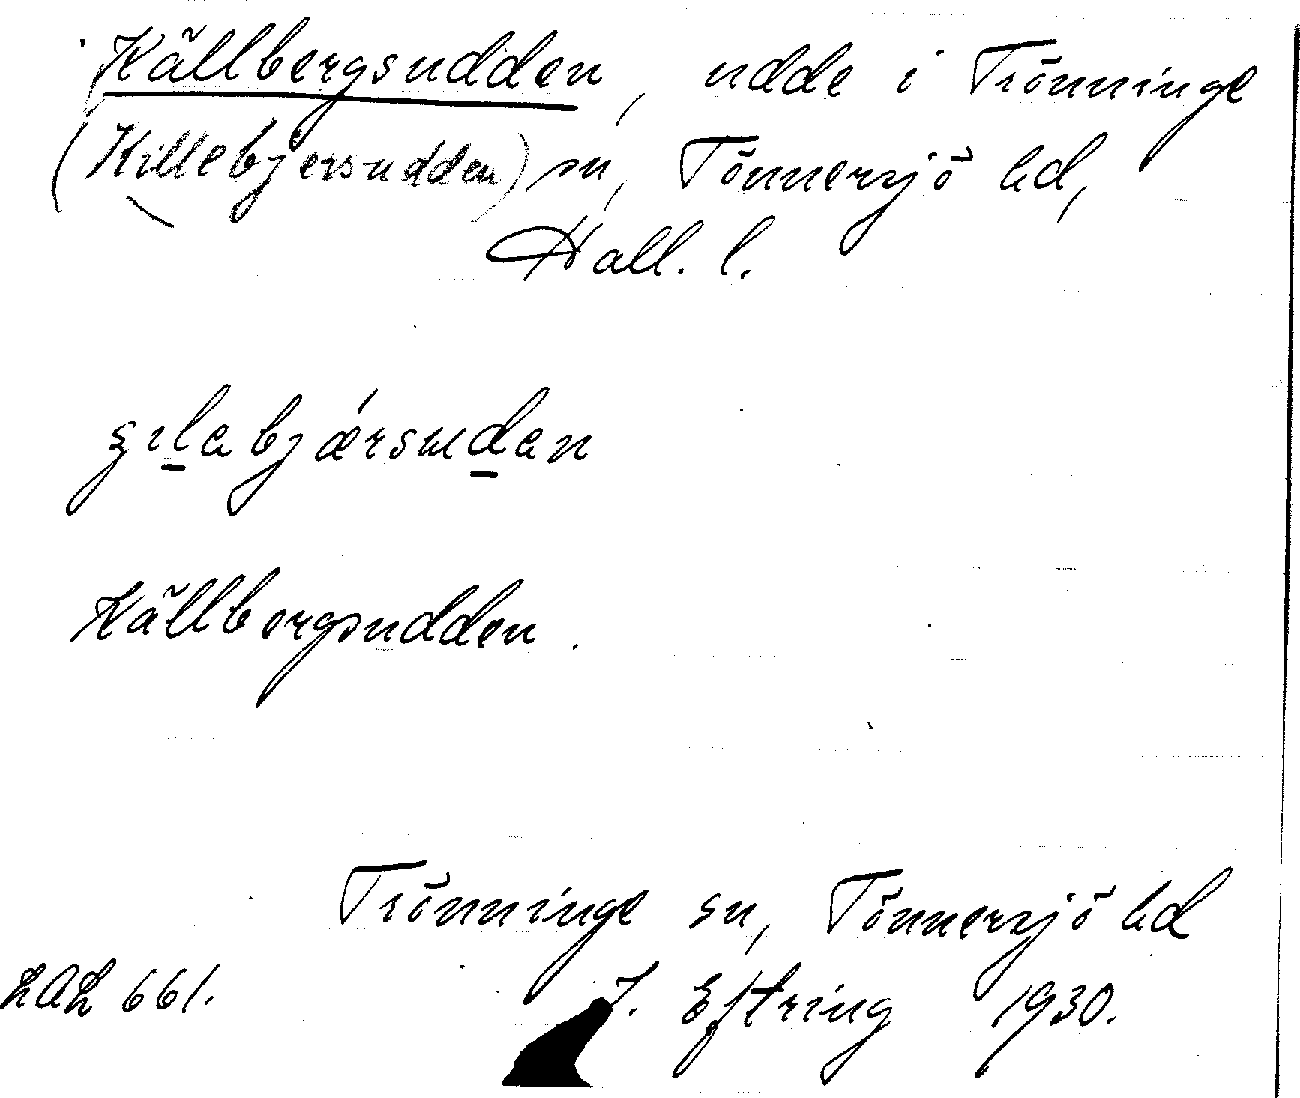 Källbergsudden, udde i Trönninge
(Killebjersudden) sn, Tönnersjö hd,
Hall. l.
Källbergsudden.
Trönninge sn, Tönnersjö hd
LAL 661. J. Eftring 1930.